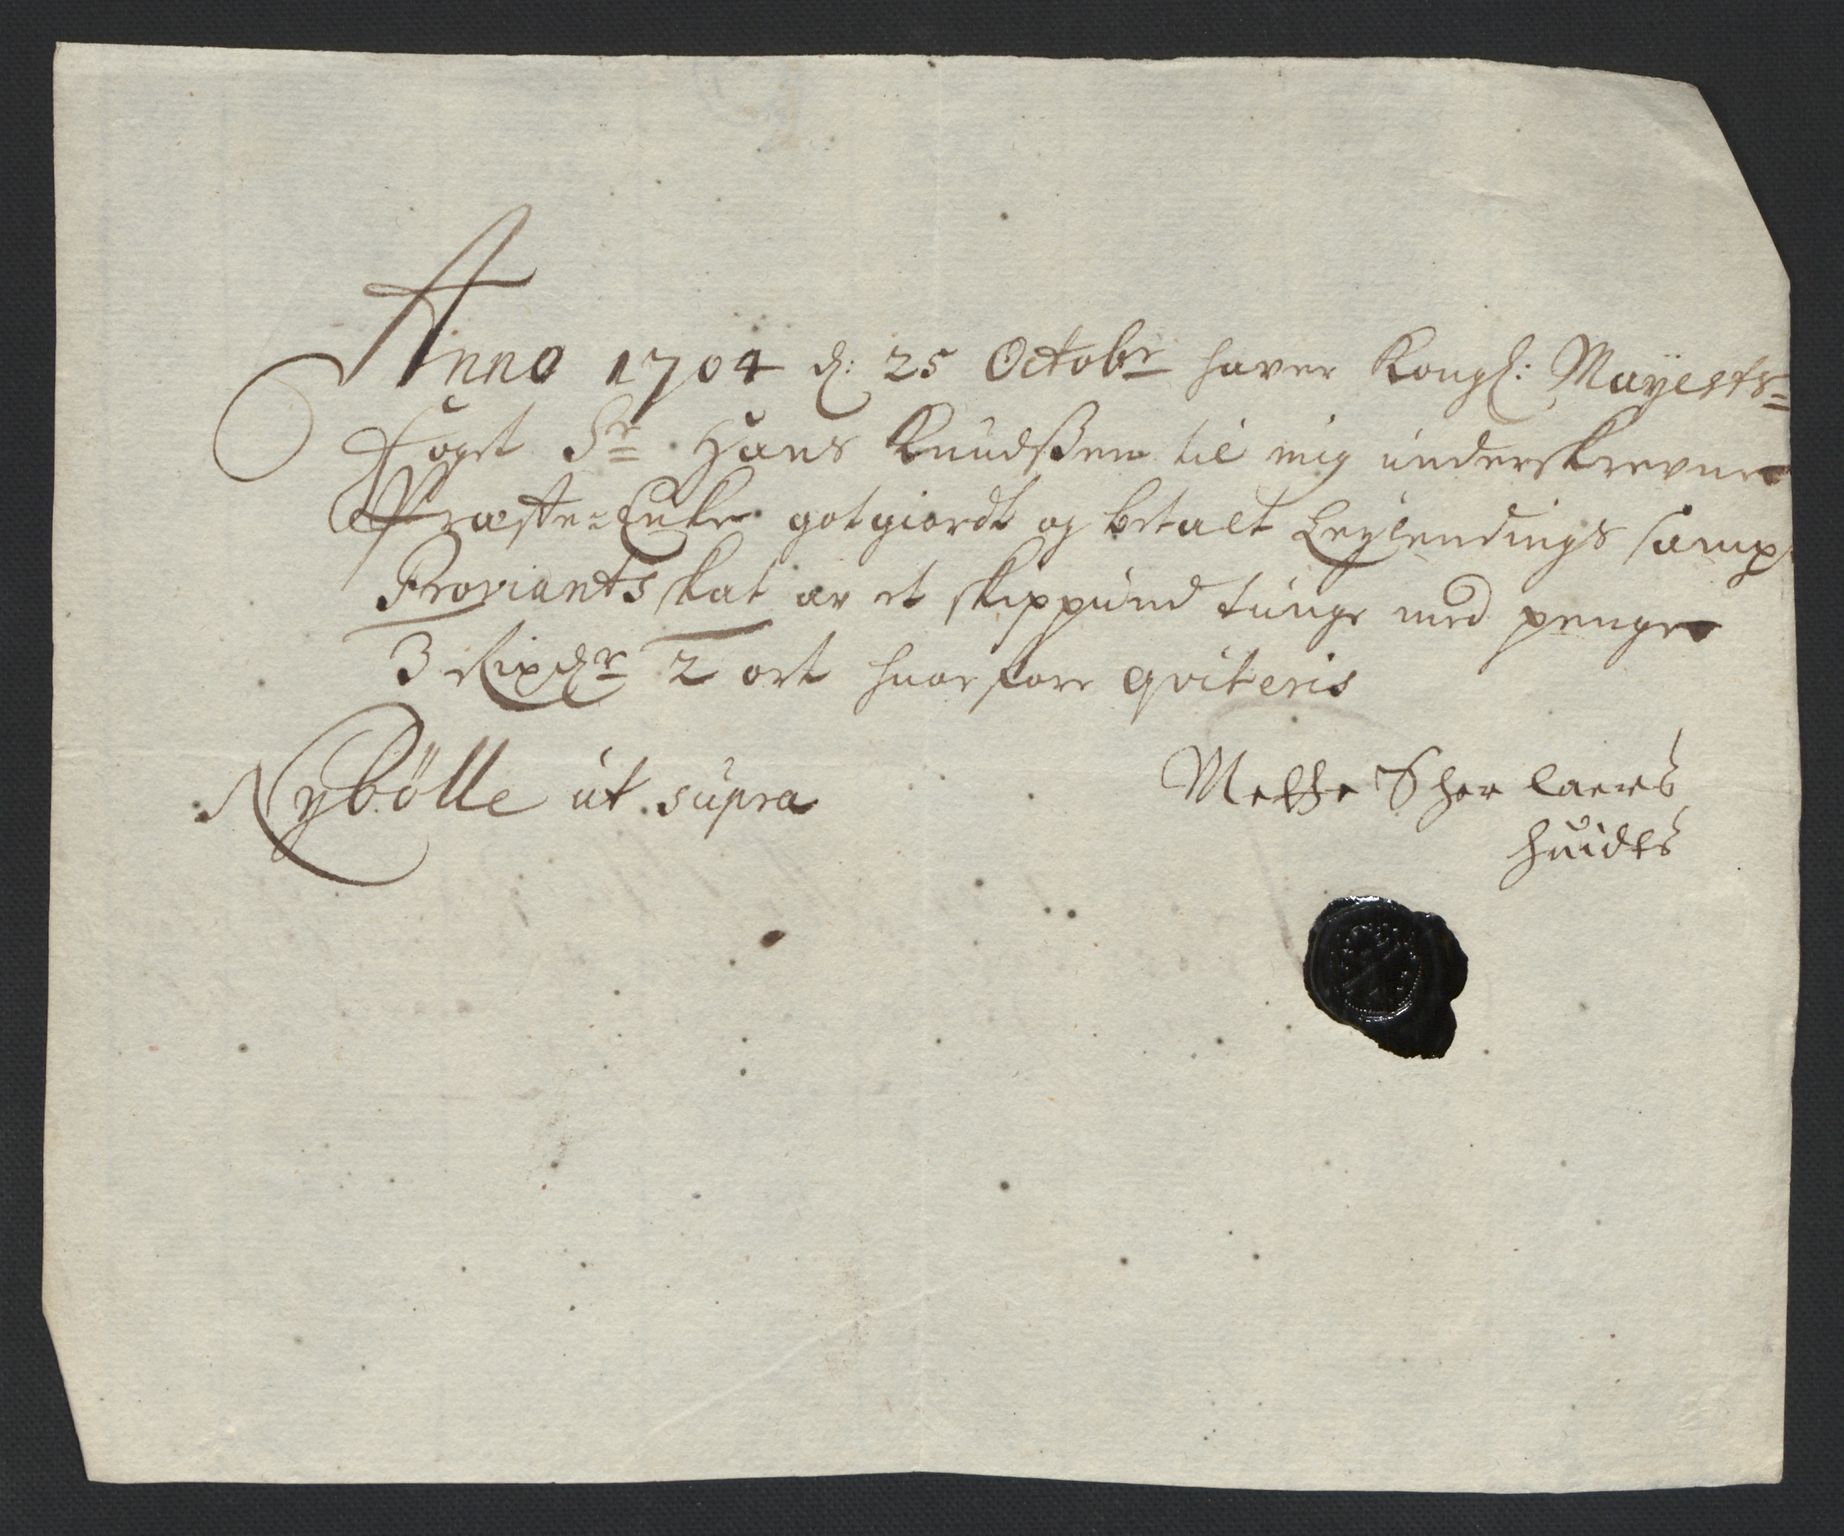 Anno 1704 d: 25 Octobr haver Kongl: Mayests=
Foget Sr Hans Knudßen til mig underskrevne
Præste=Enke gotgiordt og betalt Leylendings samp
Proviants skat av et skippund tunge med penger
3 Rixdr 2 ort huorfore qviteris
Nybölle ut supra
Mette Sher Laers
huides